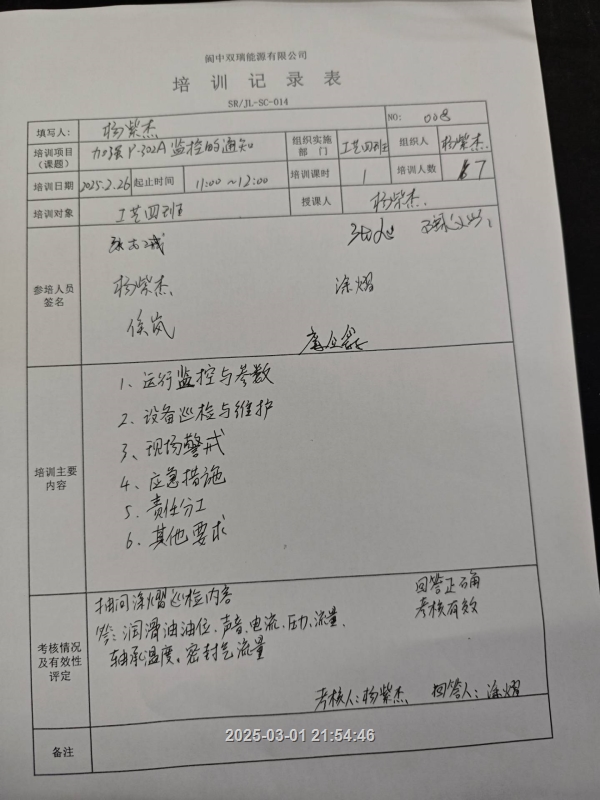 阆中双瑞能源有限公司
培训记录表
SR/JL-SC-014
NO: 008
填写人: 杨紫杰
培训项目(课题) 加强P-302A监控的通知 组织实施部门 工艺四班 组织人 杨紫杰
培训日期 2025.2.26 起止时间 11:00～12:00 培训课时 1 培训人数 7
培训对象 工艺四班 授课人 杨紫杰
参培人员签名
杨紫杰 涂熠
侯岚
培训主要内容
1、运行监控与参数
2、设备巡检与维护
3、现场警戒
4、应急措施
5、责任分工
6、其他要求
考核情况及有效性评定
抽问涂熠巡检内容 回答正确
答:润滑油油位、声音、电流、压力、流量、 考核有效
轴承温度。密封气流量
考核人:杨紫杰 回答人:涂熠
备注
2025-03-01 21:54:46